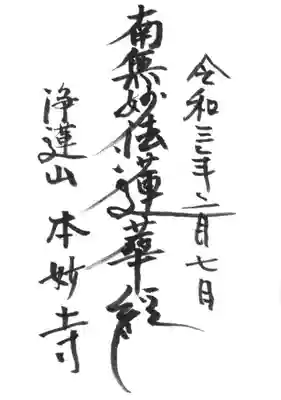 令和三年二月七日
南無妙法蓮華経
浄蓮山 本妙寺